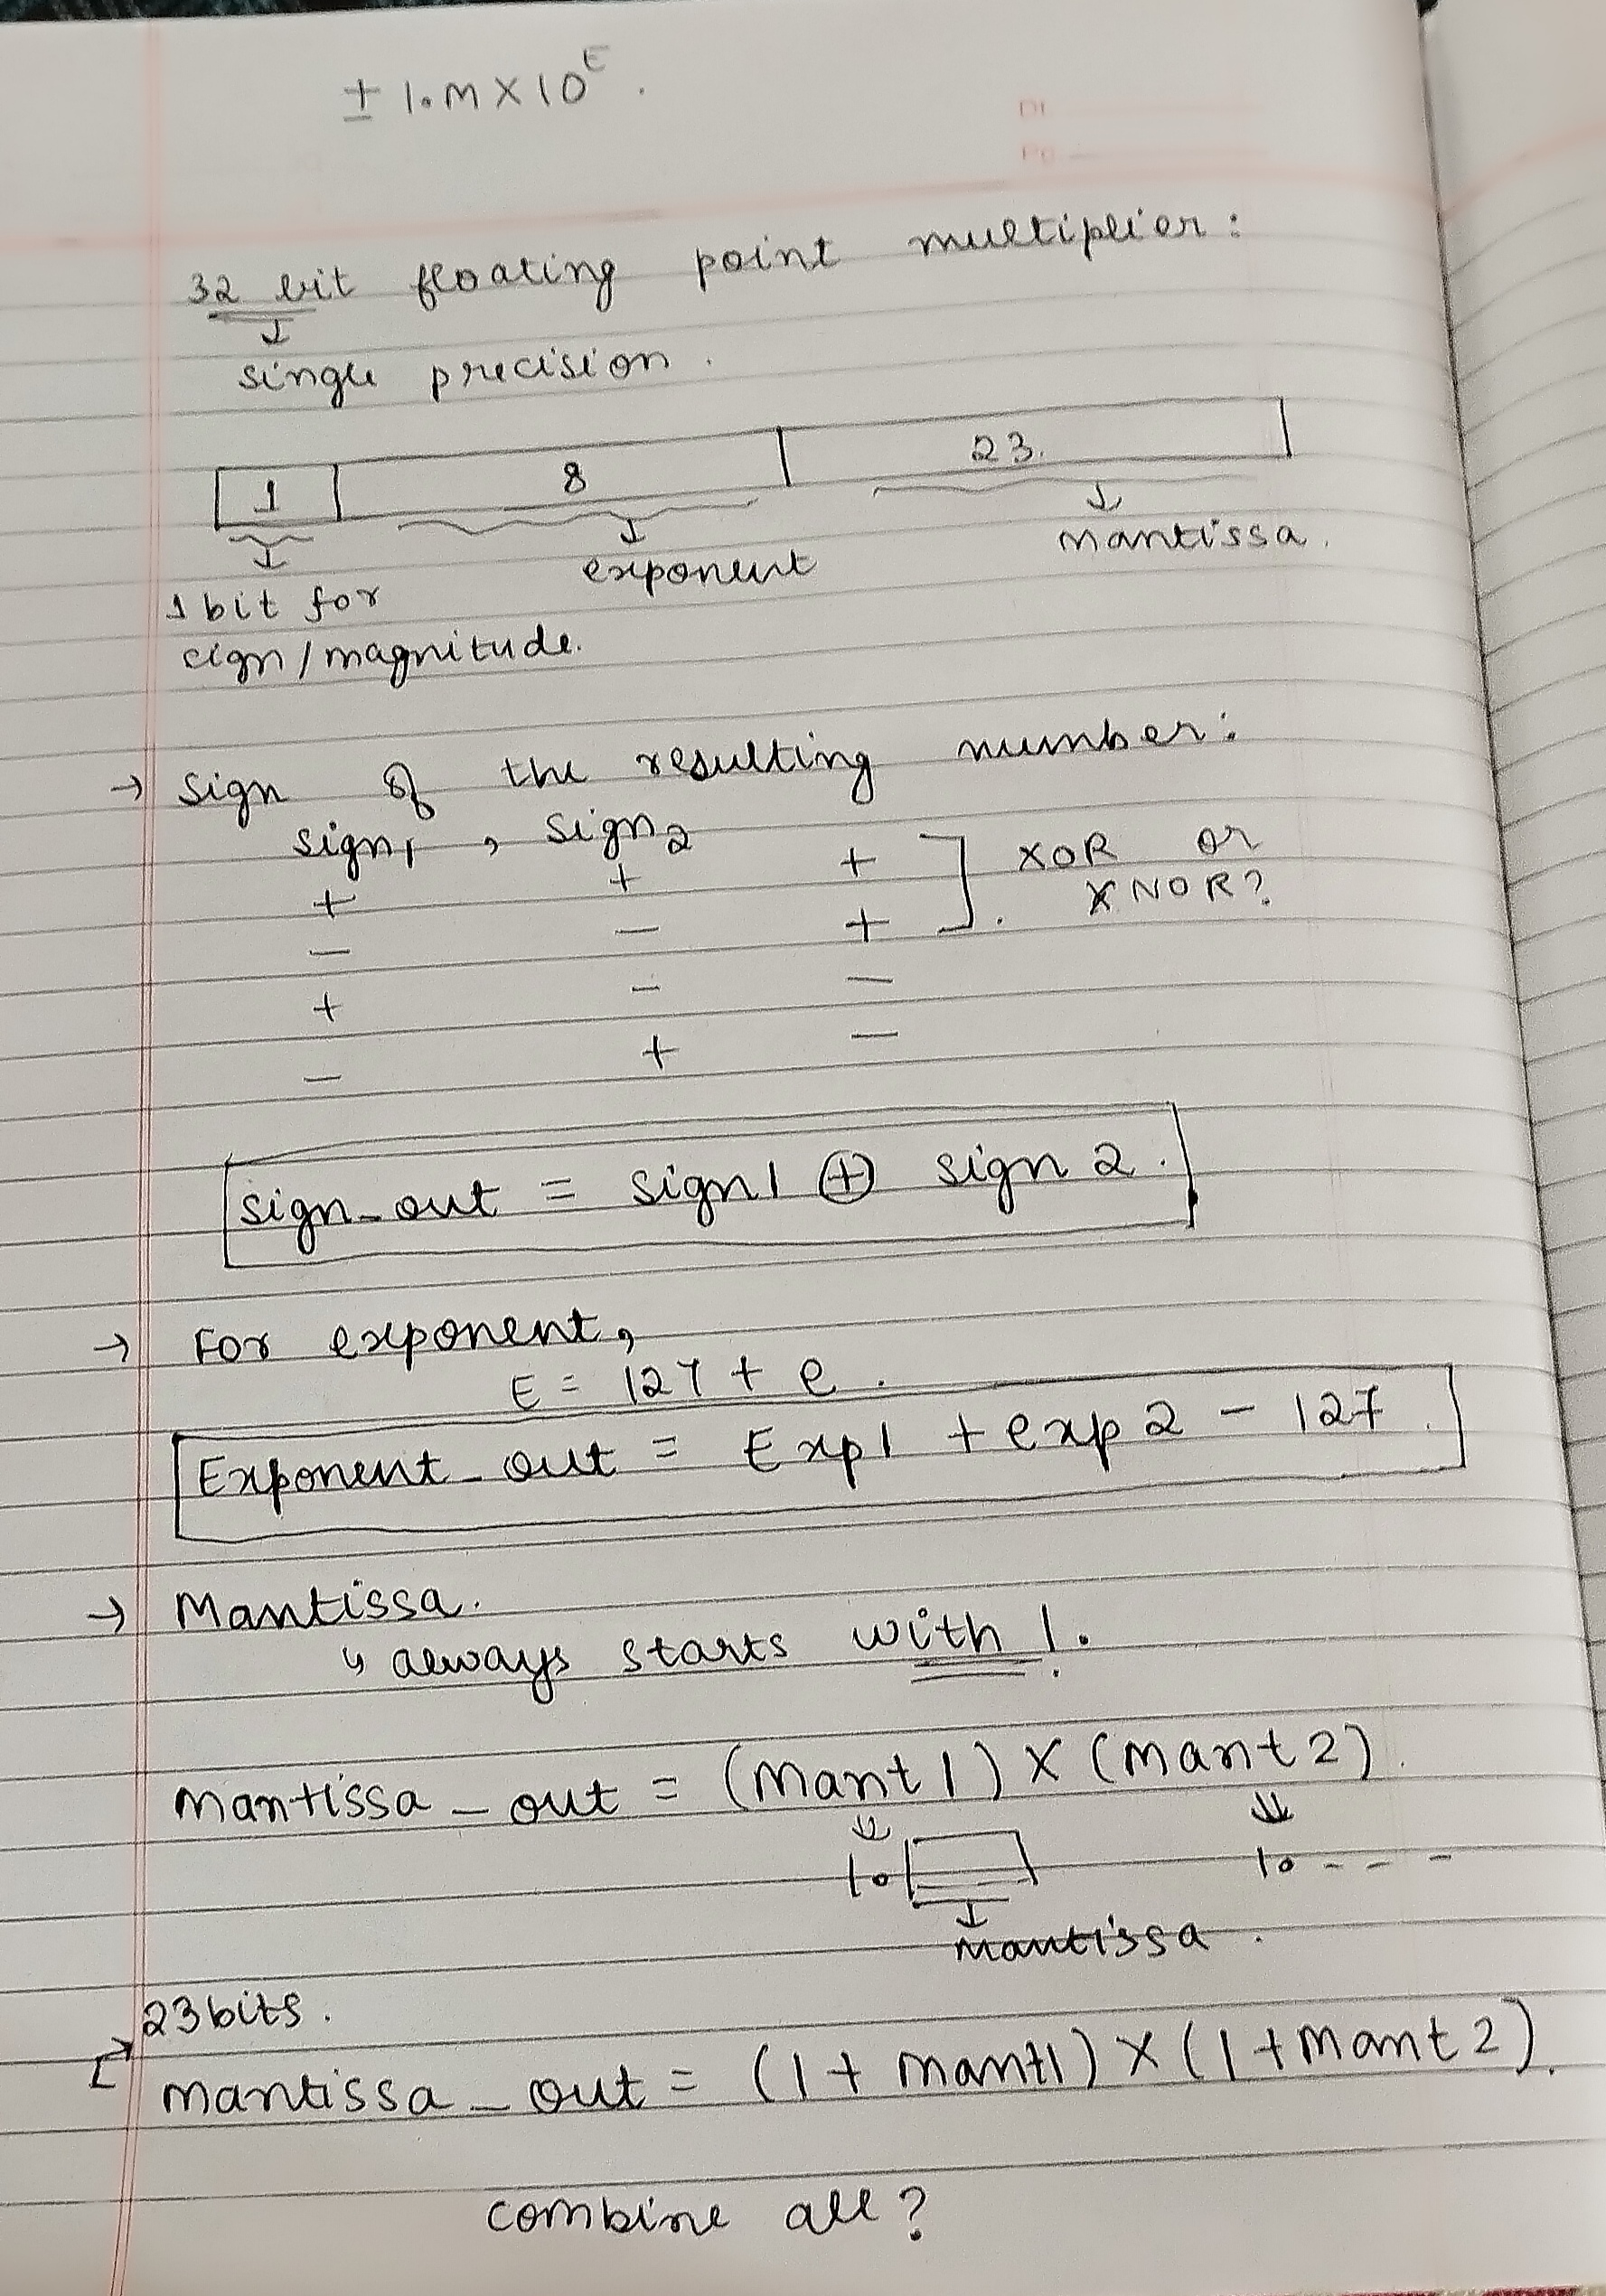 ± 1.M X 10^E.
Dt.
Pg.
32 bit floating point multiplier:
↓
single precision.
1 8 23.
↓ ↓ ↓
1 bit for exponent mantissa.
sign/magnitude.
→ Sign of the resulting number:
sign1 , sign2
+ + + ] XOR or
- - + . XNOR?
+ - -
- + -
sign_out = sign1 ⊕ sign 2.
→ For exponent,
E = 127 + e.
Exponent_out = Exp1 + exp 2 - 127.
→ Mantissa.
↳ always starts with 1.
Mantissa_out = (Mant 1) X (Mant 2).
⇓ ⇓
1. 1. - - -
↓
Mantissa.
23 bits.
Mantissa_out = (1 + Mant1) X (1 + Mant 2).
combine all?